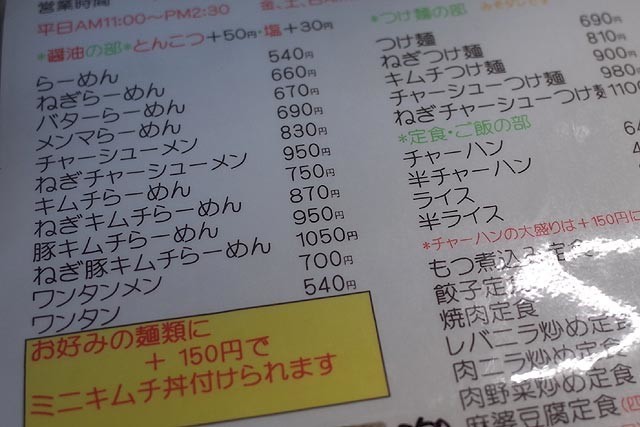 営業時間
平日AM11:00～PM2:30 金、土、日
*醤油の部*とんこつ+50円・塩+30円
らーめん 540円
ねぎらーめん 660円
バターらーめん 670円
メンマらーめん 690円
チャーシューメン 830円
ねぎチャーシューメン 950円
キムチらーめん 750円
ねぎキムチらーめん 870円
豚キムチらーめん 950円
ねぎ豚キムチらーめん 1050円
ワンタンメン 700円
ワンタン 540円
お好みの麺類に
+150円で
ミニキムチ丼付けられます
*つけ麺の部
つけ麺 690円
ねぎつけ麺 810円
キムチつけ麺 900円
チャーシューつけ麺 980円
ねぎチャーシューつけ麺 1100
*定食・ご飯の部
チャーハン
半チャーハン
ライス
半ライス
*チャーハンの大盛りは+150円に
もつ煮込み定食
餃子定食
焼肉定食
レバニラ炒め定食
肉ニラ炒め定食
肉野菜炒め定食
麻婆豆腐定食